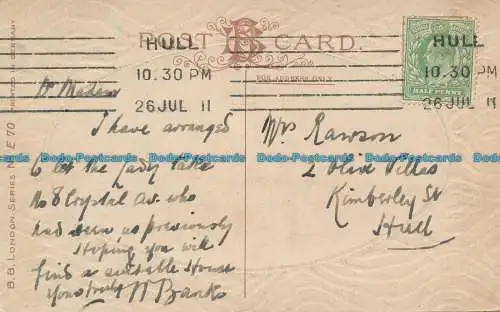 POST B CARD.
FOR ADDRESS ONLY
HULL
10.30 PM
26 JUL 11
HULL
10.30 PM
26 JUL 11
HALF PENNY
B.B. LONDON SERIES No. E 70
PRINTED IN GERMANY
Dr Madam
I have arranged
to let the Lady take
No 8 Crystal Av. who
had seen us previously
Hoping you will
find a suitable House
Yours truly W Banks
Mrs Rawson
2 Olive Villas
Kimberley St
Hull
Dodo-Postcards